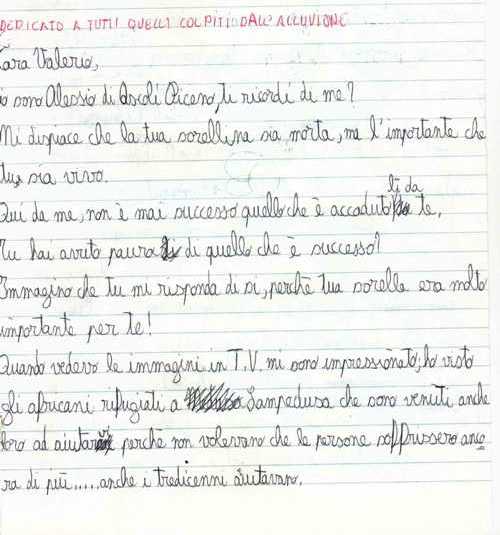 DEDICATO A TUTTI QUELLI COLPITI DALL'ALLUVIONE
Cara Valerio,
io sono Alessio di Ascoli Piceno, ti ricordi di me?
Mi dispiace che la tua sorellina sia morta, ma l'importante che
tu sia vivo.
Qui da me, non è mai successo quello che è accaduto lì da te.
Tu hai avuto paura di quello che è successo?
Immagino che tu mi risponda di si, perchè tua sorella era molto
importante per te!
Quando vedevo le immagini in T.V. mi sono impressionato; ho visto
gli africani rifugiati a Lampedusa che sono venuti anche
loro ad aiutarvi perchè non volevano che le persone soffrussero anco
ra di più.....anche i tredicenni aiutavano.